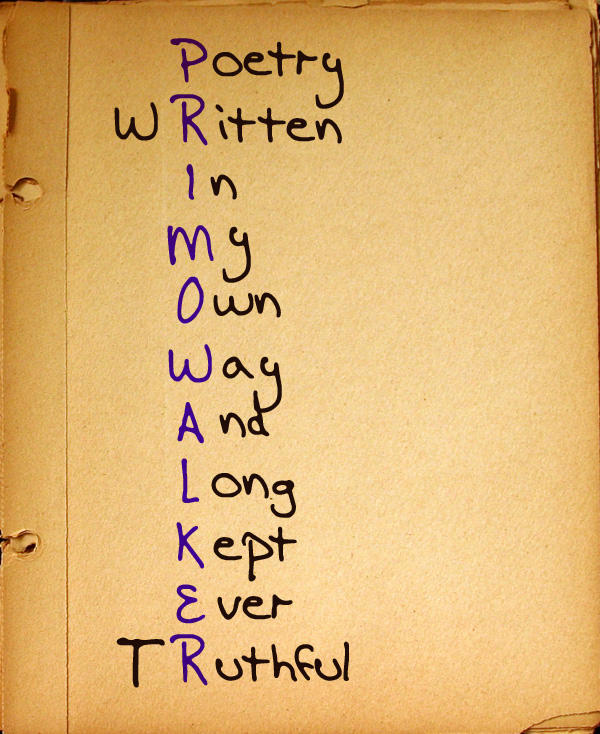 Poetry
WRitten
In
My
Own
Way
And
Long
Kept
Ever
TRuthful